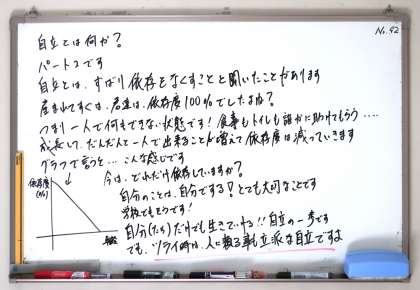 No.42
自立とは何か?
パート2です
自立とは、ずばり依存をなくすことと聞いたことがあります
産まれてすぐは、君達は、依存度100%でしたよね?
つまり一人で何もできない状態です! 食事もトイレも誰かに助けてもらう….
成長して、だんだんと一人で出来ることが増えて依存度は減っていきます
グラフで言うと… こんな感じです
今は、どれだけ依存していますか?
依存度
(%)
自分のことは、自分でする! とても大切なことです
学校でもそうです!
自分(たち)だけでも生きていける!! 自立の一歩です
でも、ツライ時は、人に頼る事も立派な自立ですよ